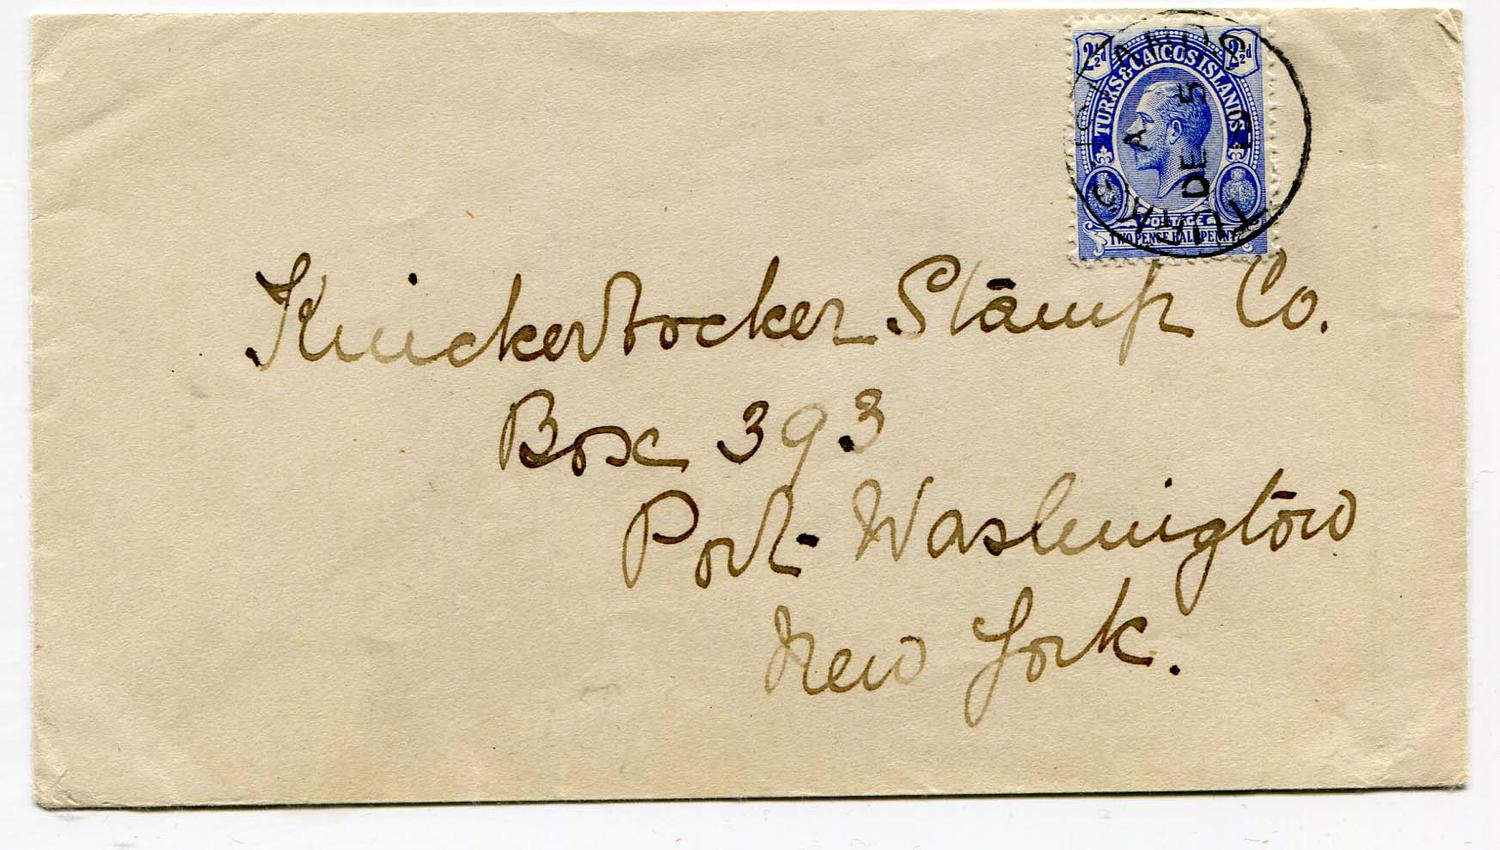 2½d 2½d
TURKS & CAICOS ISLANDS
POSTAGE
TWO PENCE HALFPENNY
A
DE 5
Knickerbocker Stamp Co.
Box 393
Port Washington
New York.